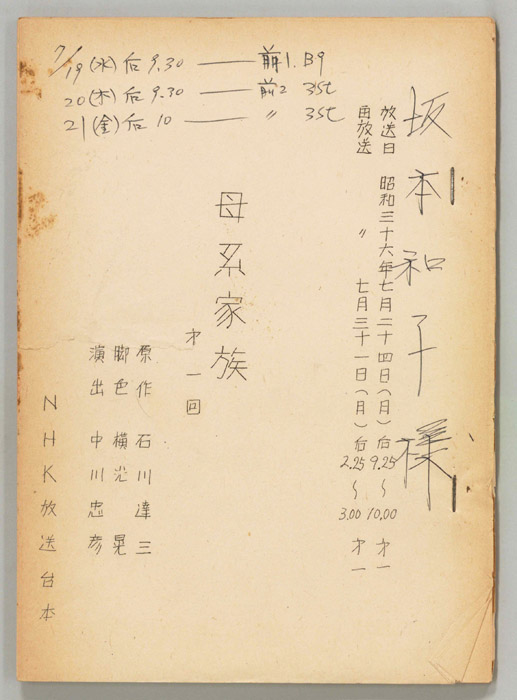 7/19(水)后9.30 ── 前1. B9
20(木)后9.30 ── 前2 3St
21(金)后10 ── 〃 3St
坂本和子様
放送日 昭和三十六年七月二十四日(月)后9.25〜10.00 才一
再放送 〃 七月三十一日(月)后2.25〜3.00 才一
母系家族
才一回
原作 石川達三
脚色 横光晃
演出 中川忠彦
NHK放送台本